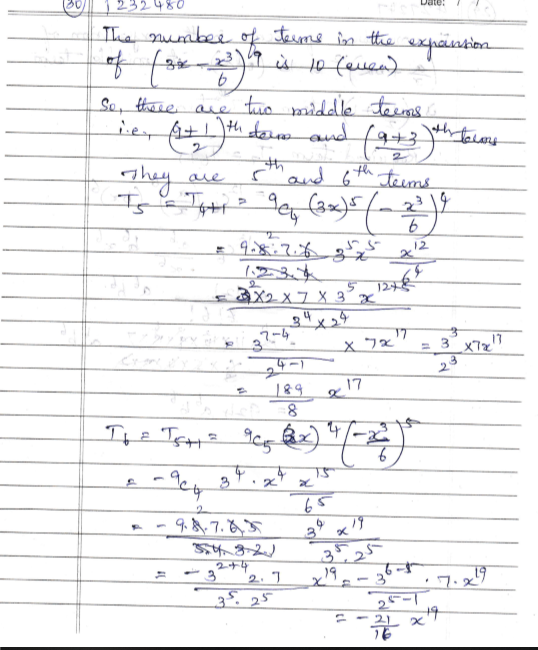 (30) 1232480 Date: / /
The number of terms in the expansion
of (3x - x³/6)⁹ is 10 (even)
So, there are two middle terms
i.e., (9+1/2)ᵗʰ term and (9+3/2)ᵗʰ terms
They are 5ᵗʰ and 6ᵗʰ terms
T₅ = T₄₊₁ = ⁹C₄ (3x)⁵ (- x³/6)⁴
= 9.8.7.6/1.2.3.4 3⁵x⁵ x¹²/6⁴
= 3²×2×7×3⁵ x¹²⁺⁵/3⁴×2⁴
= 3⁷⁻⁴/2⁴⁻¹ × 7x¹⁷ = 3³/2³ ×7x¹⁷
= 189/8 x¹⁷
T₆ = T₅₊₁ = ⁹C₅ (3x)⁴ (-x³/6)⁵
= -⁹C₄ 3⁴. x⁴ x¹⁵/6⁵
= - 9.8.7.6.5/5.4.3.2.1 3⁴ x¹⁹/3⁵. 2⁵
= - 3²⁺⁴ 2. 7/3⁵. 2⁵ x¹⁹ = - 3⁶⁻⁵ . 7. x¹⁹/2⁵⁻¹
= - 21/16 x¹⁹